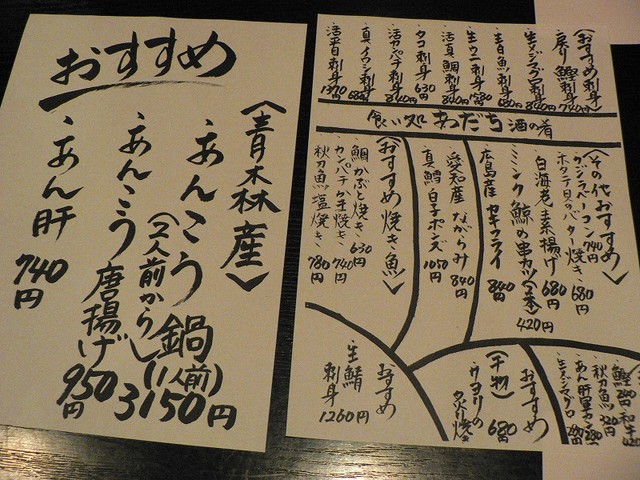 おすすめ
〈青森産〉
・あんこう鍋(1人前)3150円
(2人前から)
・あんこう唐揚げ950円
・あん肝740円
〈おすすめ刺身〉
・戻り鰹刺身740円
・生メジマグロ刺身840円
・白魚刺身680円
・生ウニ刺身1580円
・活真鯛刺身840円
・タコ刺身630円
・活カンパチ刺身840円
・真イワシ刺身680円
・活平目刺身1370円
食い処まつだち酒の肴
〈その他おすすめ〉
740円
・ホタテ貝のバター焼き680円
・白海老素揚げ680円
・ミンク鯨の串カツ(2本)420円
広島産カキフライ840円
愛知産ながらみ840円
真鱈白子ポンズ1050円
〈おすすめ焼き魚〉
・鯛かぶと焼き630円
・カンパチかま焼き740円
・秋刀魚塩焼き780円
おすすめ
生鯖刺身1260円
おすすめ
〈干物〉
サヨリの炙り焼き680円
・秋刀魚320円
・生メジマグロ